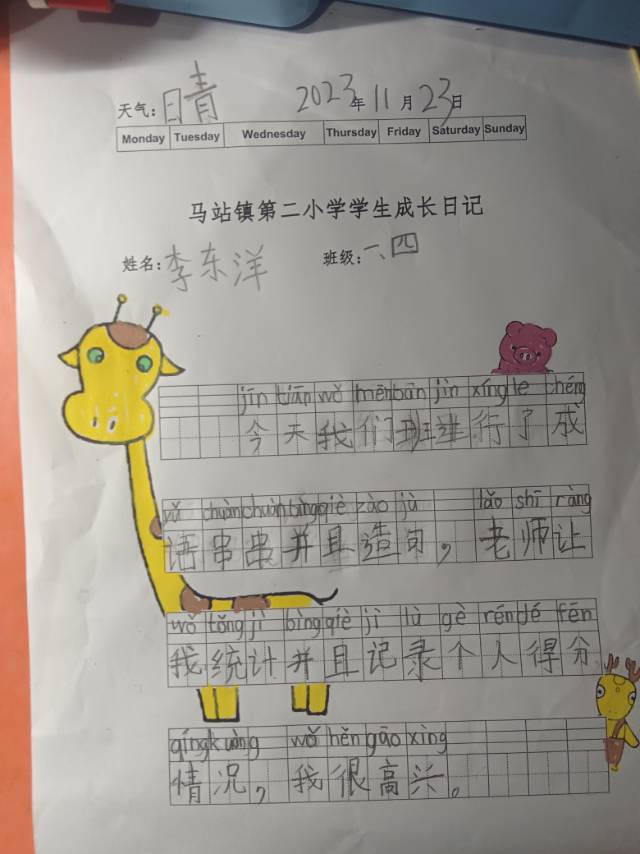 天气：晴 2023年11月23日
Monday Tuesday Wednesday Thursday Friday Saturday Sunday
马站镇第二小学学生成长日记
姓名：李东洋 班级：一、四
jīn tiān wǒ mēn bān jìn xíng le chéng
今天我们班进行了成
yǔ chuàn chuàn bìng qiě zào jù lǎo shī ràng
语串串并且造句，老师让
wǒ tǒng jì bìng qiě jì lù gè rén dé fēn
我统计并且记录个人得分
qíng kuàng wǒ hěn gāo xìng
情况，我很高兴。